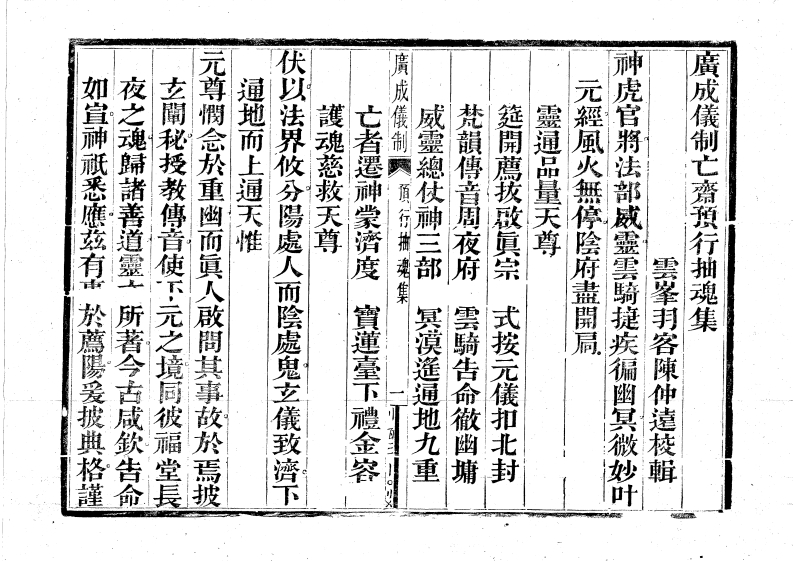 廣成儀制亡齋預行抽魂集
雲峯羽客陳仲遠校輯
神虎官將法部威靈雲騎捷疾徧幽冥微妙叶
元經風火無停陰府盡開扃
靈通品量天尊
筵開薦抜啟眞宗　式按元儀扣北封
梵韻傳音周夜府　雲騎告命徹幽墉
威靈總仗神三部　冥漠遙通地九重
廣成儀制　預行抽魂集　一
亡者遷神蒙濟度　寶蓮臺下禮金容
護魂慈救天尊
伏以法界攸分陽處人而陰處鬼玄儀致濟下
通地而上通天惟
元尊憫念於重幽而眞人啟開其事故於焉披
玄闡秘授教傳音使下元之境同彼福堂長
夜之魂歸諸善道靈　所著今古咸欽告命
如宣神祇悉應茲有事於薦陽爰披典格謹